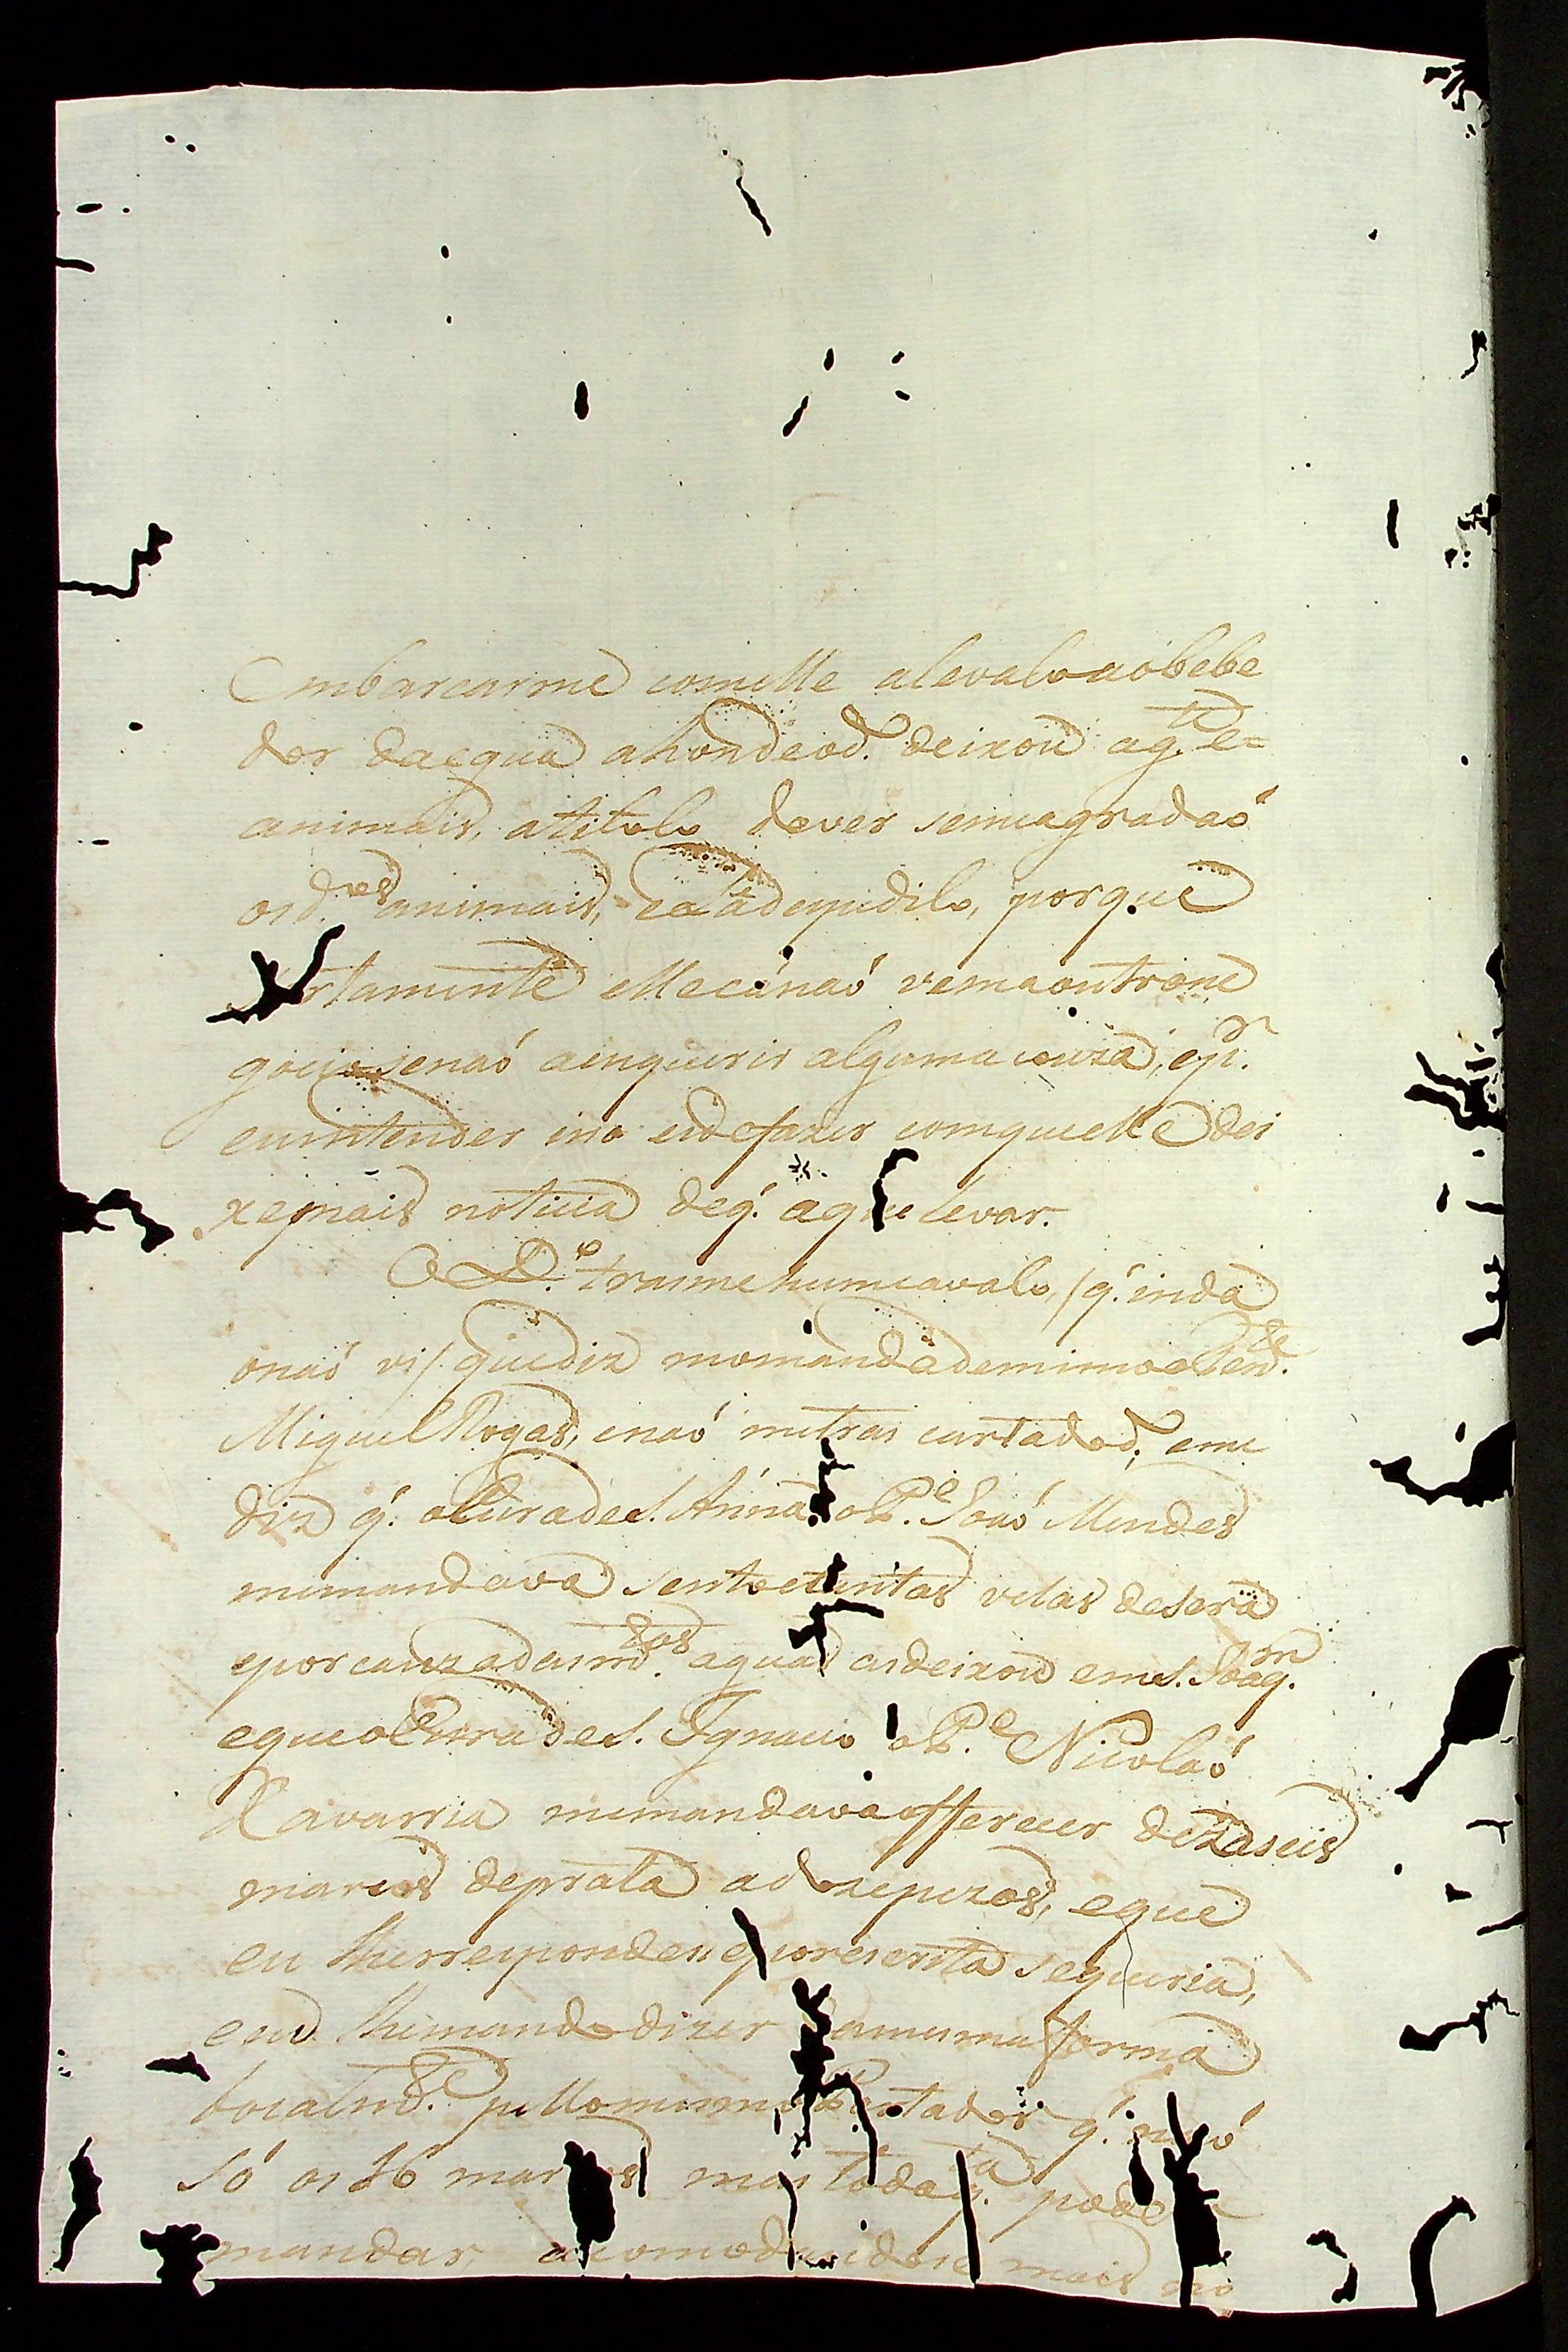 Embarcarme com elle a levalo ao bebe
dor da egua ahonde o d.º deixou a g.te e=
animais, a titolo de ver se me agradaó
os d.os animais, e ca a despidilo, porque
rtamente elle ca naó vem a outro ne
gocio senaó a inquirir alguma couza, e p.r
eu intender isso eide fazer com que elle dei
xe mais noticia de q.' a que levar.
O D.º tras me hum cavalo, /q.' inda
onaó vi/ que diz mo manda de mimo o Ten.te
Miguel Rogas, e naó me tras carta do d.º, e me
diz q.' o Cura de S. Anna o P.e Joaó Mendes
me mandava sento e tantas velas de sera
e por cauza das m.das aguas as deixou em S. Joaq.m
e que o Cura de S. Ignacio o P.e Nicoláo
Xavarria me mandava offerecer dezaseis
marcos de prata a doze pezos, e que
eu lhe respondese por escrita se queria,
e eu lhe mando dizer da mesma forma
bocalm.te pello mesmo Portador q.' naó
só os 16 marcos mas toda q.ta poder
mandar, acomodandose mais no